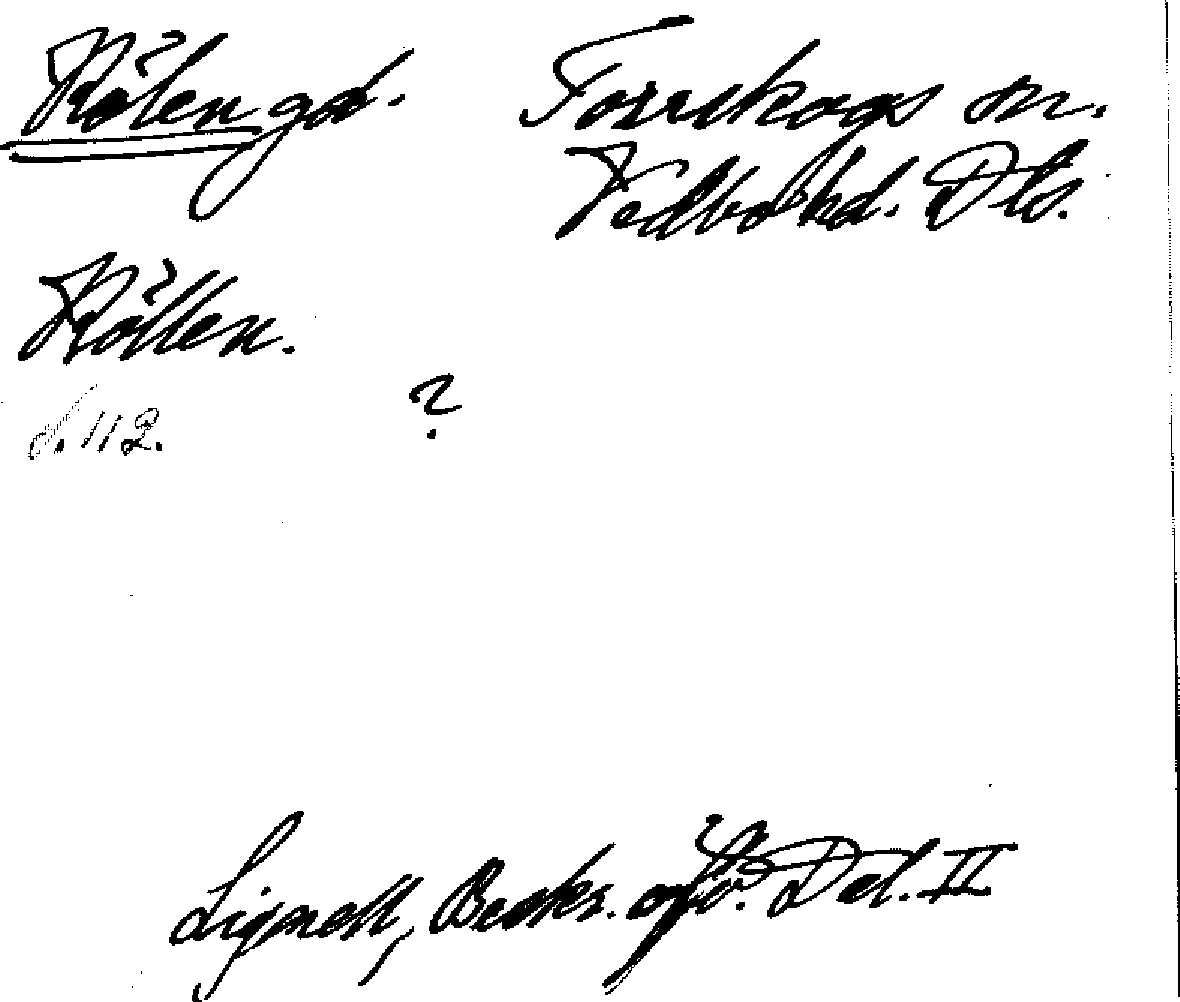 Kölen gd. Torrskogs sn.
Vedbo hd. Dls.
Köllen.
s. 112. ?
Lignell, Beskr. öfv. Dal. II